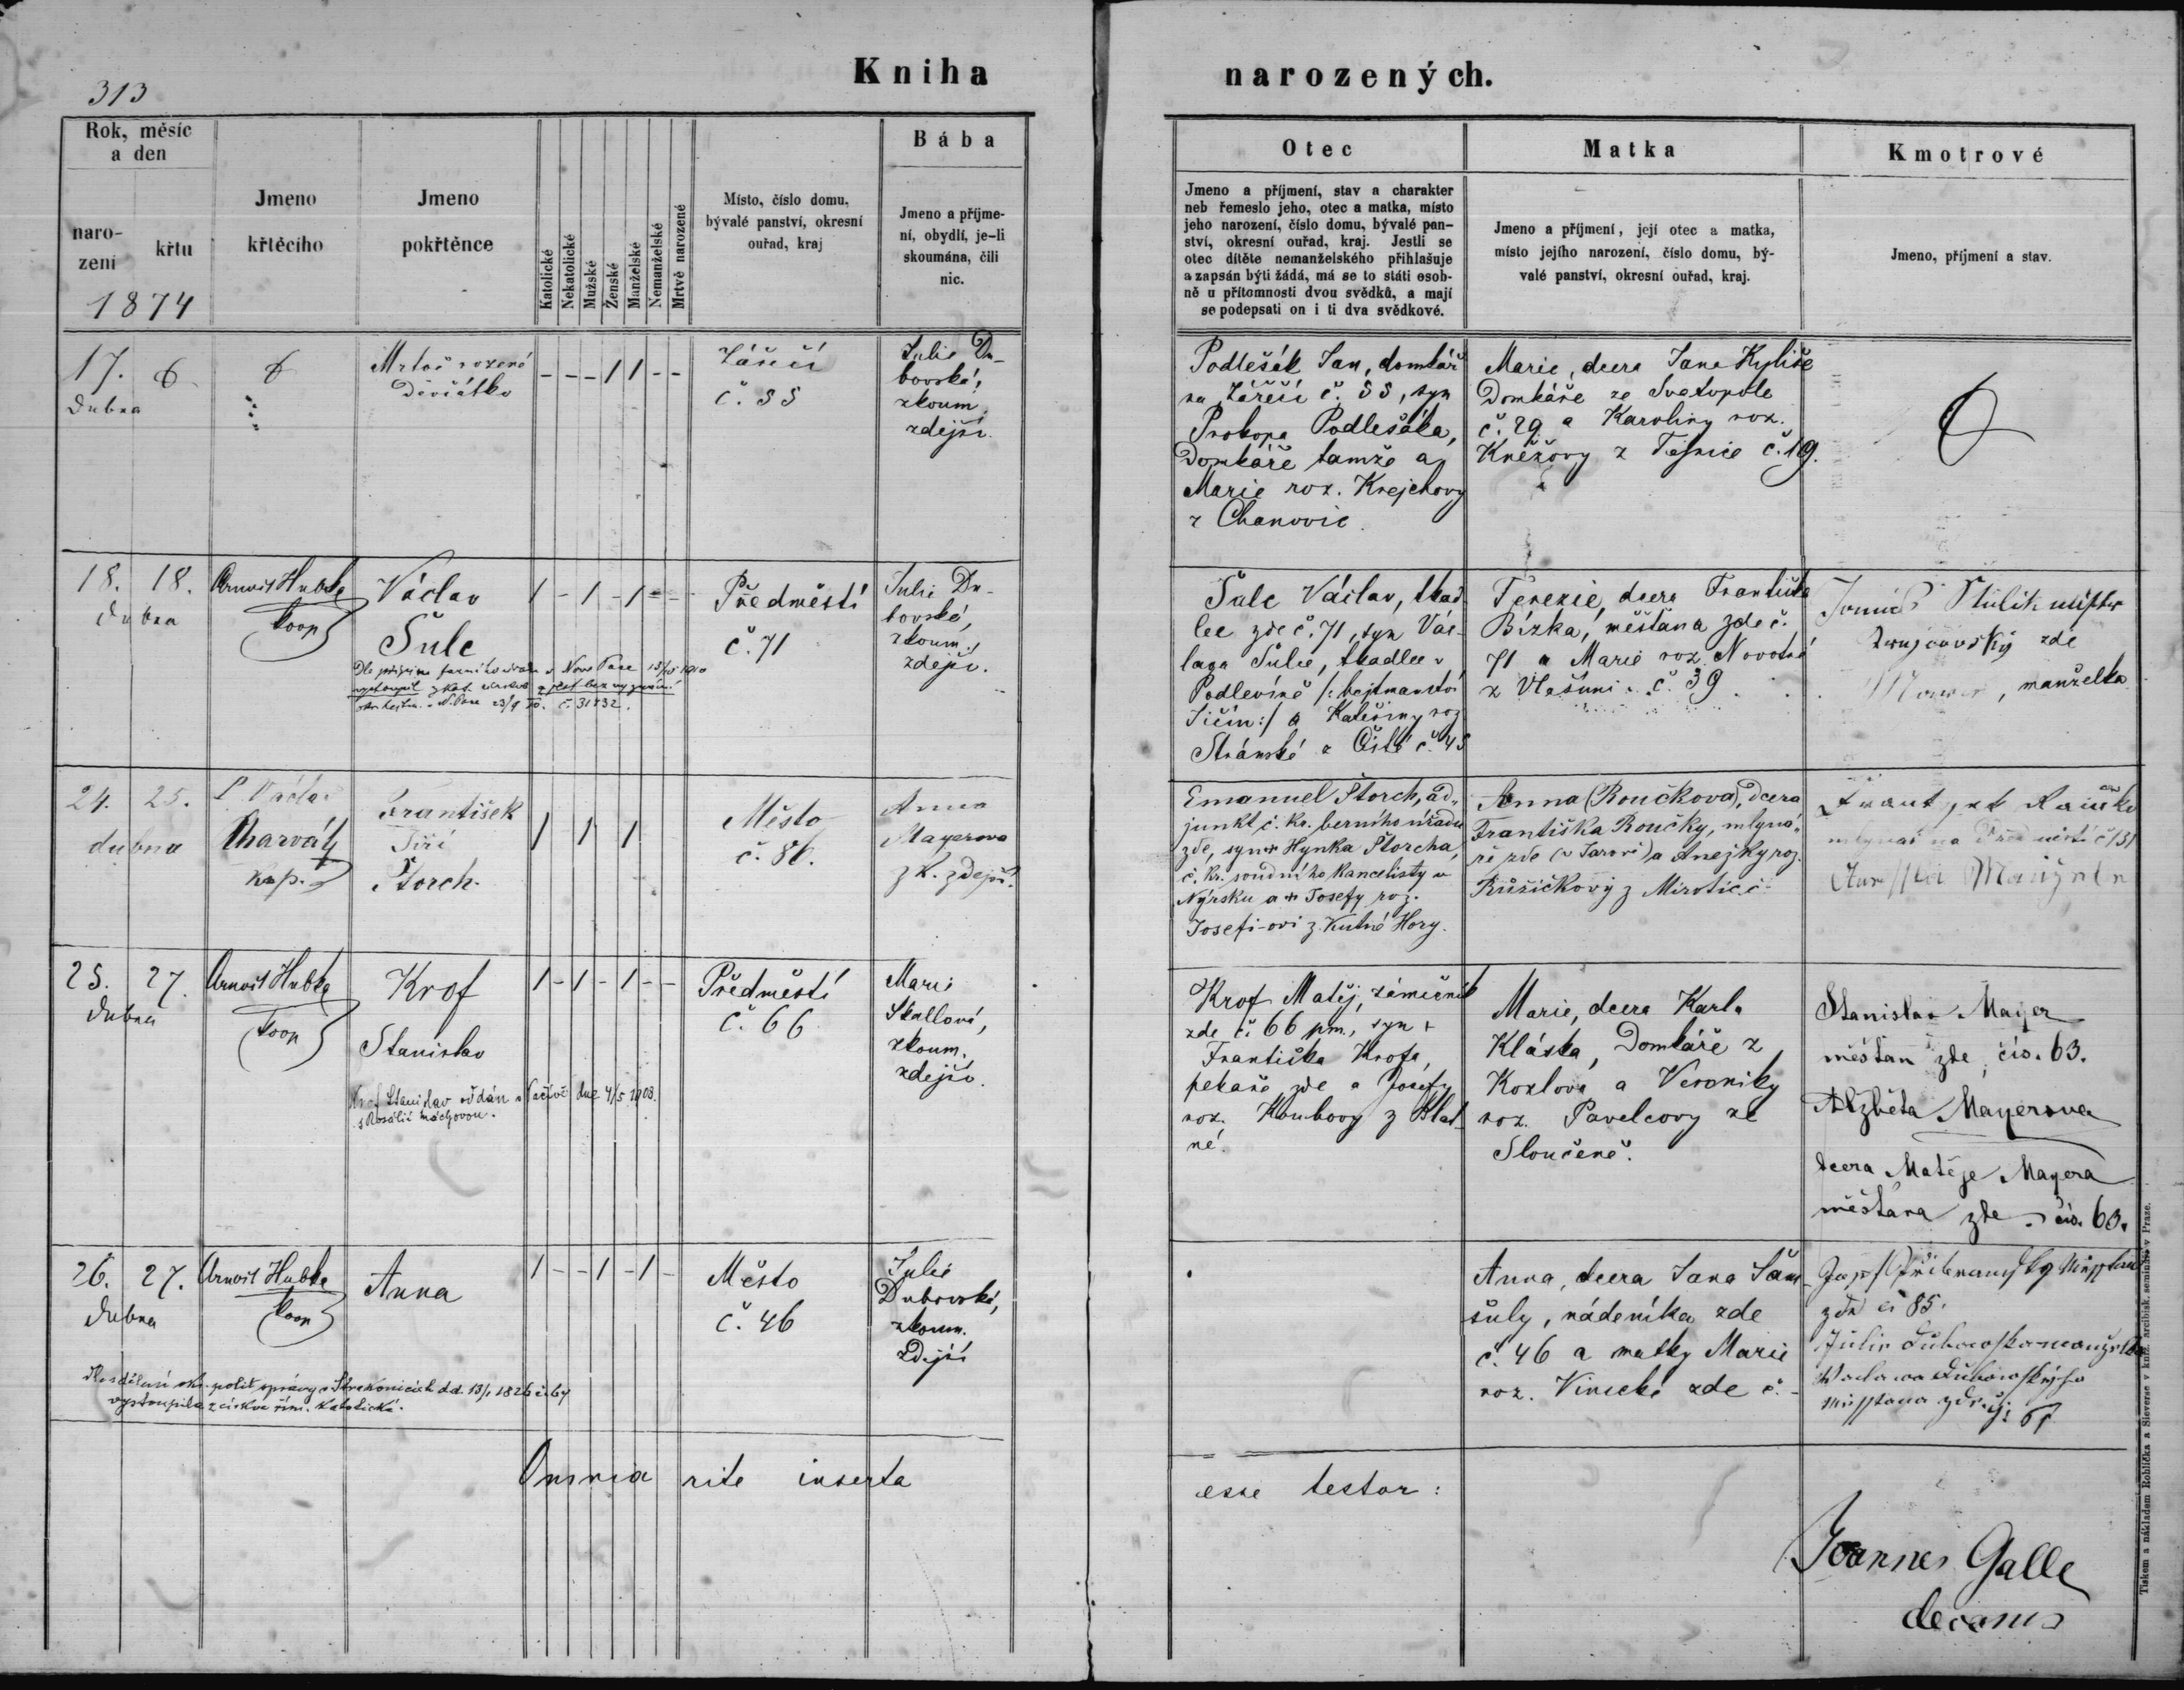 313
Kniha
narozených.
Rok, měsíc
a den
naro-
zení
křtu
1874
Jmeno
křtěcího
Jmeno
pokřtěnce
Katolické
Nekatolické
Mužské
Ženské
Manželské
Nemanželské
Mrtvě narozené
Místo, číslo domu,
bývalé panství, okresní
ouřad, kraj
Bába
Jmeno a příjme-
ní, obydlí, je-li
skoumána, čili
nic.
Otec
Jmeno a příjmení, stav a charakter
neb řemeslo jeho, otec a matka, místo
jeho narození, číslo domu, bývalé pan-
ství, okresní ouřad, kraj. Jestli se
otec dítěte nemanželského přihlašuje
a zapsán býti žádá, má se to státi osob-
ně u přítomnosti dvou svědků, a mají
se podepsati on i ti dva svědkové.
Matka
Jmeno a příjmení, její otec a matka,
místo jejího narození, číslo domu, bý-
valé panství, okresní ouřad, kraj.
Kmotrové
Jmeno, příjmení a stav.
17.
Dubna
Mrtvě rozené
Děvčátko
- - - 1 1 - -
Záříčí
č. 55
Julie Du-
bovská,
zkoum.
zdejší.
Podlešák Jan, domkář
na Záříčí č. 55, syn
Prokopa Podlešáka,
Domkáře tamže a
Marie roz. Krejchovy
z Chanovic.
Marie, dcera Jana
Domkáře ze Svatopole
č. 29 a Karoliny roz.
Kněžovy z č. 19.
18. 18.
Dubna
Arnošt Hubka
koop
Václav
Šulc
vystoupil z kat. církve
č. 31732.
1 - 1 - 1 - -
Předměstí
č. 71
Julie Du-
bovská,
zkoum.
zdejší.
Šulc Václav, tkad-
lec zde č. 71, syn Vác-
lava Šulce, tkadlce v
Podlevíně /: hejtmanství
Jičín :/ a Kateřiny roz.
Stránské z č. 45
Terezie, dcera Františka
Bízka, měšťana zde č.
71 a Marie roz. Novotné
z č. 39
zde
manželka
24. 25.
dubna
P. Václav
Charvát
kap.
František
Jiří
Štorch.
1 1 1
Město
č. 86.
Anna
Mayerova
zk. zdejší.
Emanuel Štorch, ad-
junkt c. kr. berního úřadu
zde, syn Hynka Štorcha,
c. kr. soudního kancelisty v
Nýrsku a Josefy roz.
Josefi-ovi z Kutné Hory.
Anna (Roučkova), dcera
Františka Roučky, mlyná-
ře zde a Anejky roz.
Růžičkový z Mirotic č.
mlynář na Předměstí č 131
25. 27.
Dubna
Arnošt Hubka
koop
Krof
Stanislav
Krof Stanislav oddán v dne 4/5 1903.
s Rosálií Máchovou.
1 - 1 - 1 - -
Předměstí
č. 66
Marie
Skallová,
zkoum.
zdejší.
Krof Matěj, zámečník
zde č. 66 pm., syn +
Františka Krofa,
pekaře zde a Josefy
roz. Koubovy z Blat-
né.
Marie, dcera Karla
Kláska, Domkáře z
Kozlova a Veroniky
roz. Pavelcovy ze
Sloučeně.
Stanislav Mayer
měšťan zde, čís. 63.
Alžběta Mayerova
dcera Matěje Mayera
měšťana zde čís. 63.
26. 27.
Dubna
Arnošt Hubka
koop
Anna
1 - - 1 - 1 -
Město
č. 46
Julie
Dubovská,
zkoum.
zdejší
okr. polit. správy v Strakonicích d.d. 13/1
vystoupila z církve řím. katolické.
Anna, dcera Jana Šam-
šuly, nádeníka zde
č. 46 a matky Marie
roz. zde č. -
zde čís 85.
Omnia rite inserta
esse testor:
Joannes Galle
decanus
Tiskem a nákladem Rohlíčka a Sieverse v kníž. arcibisk. semináři v Praze.